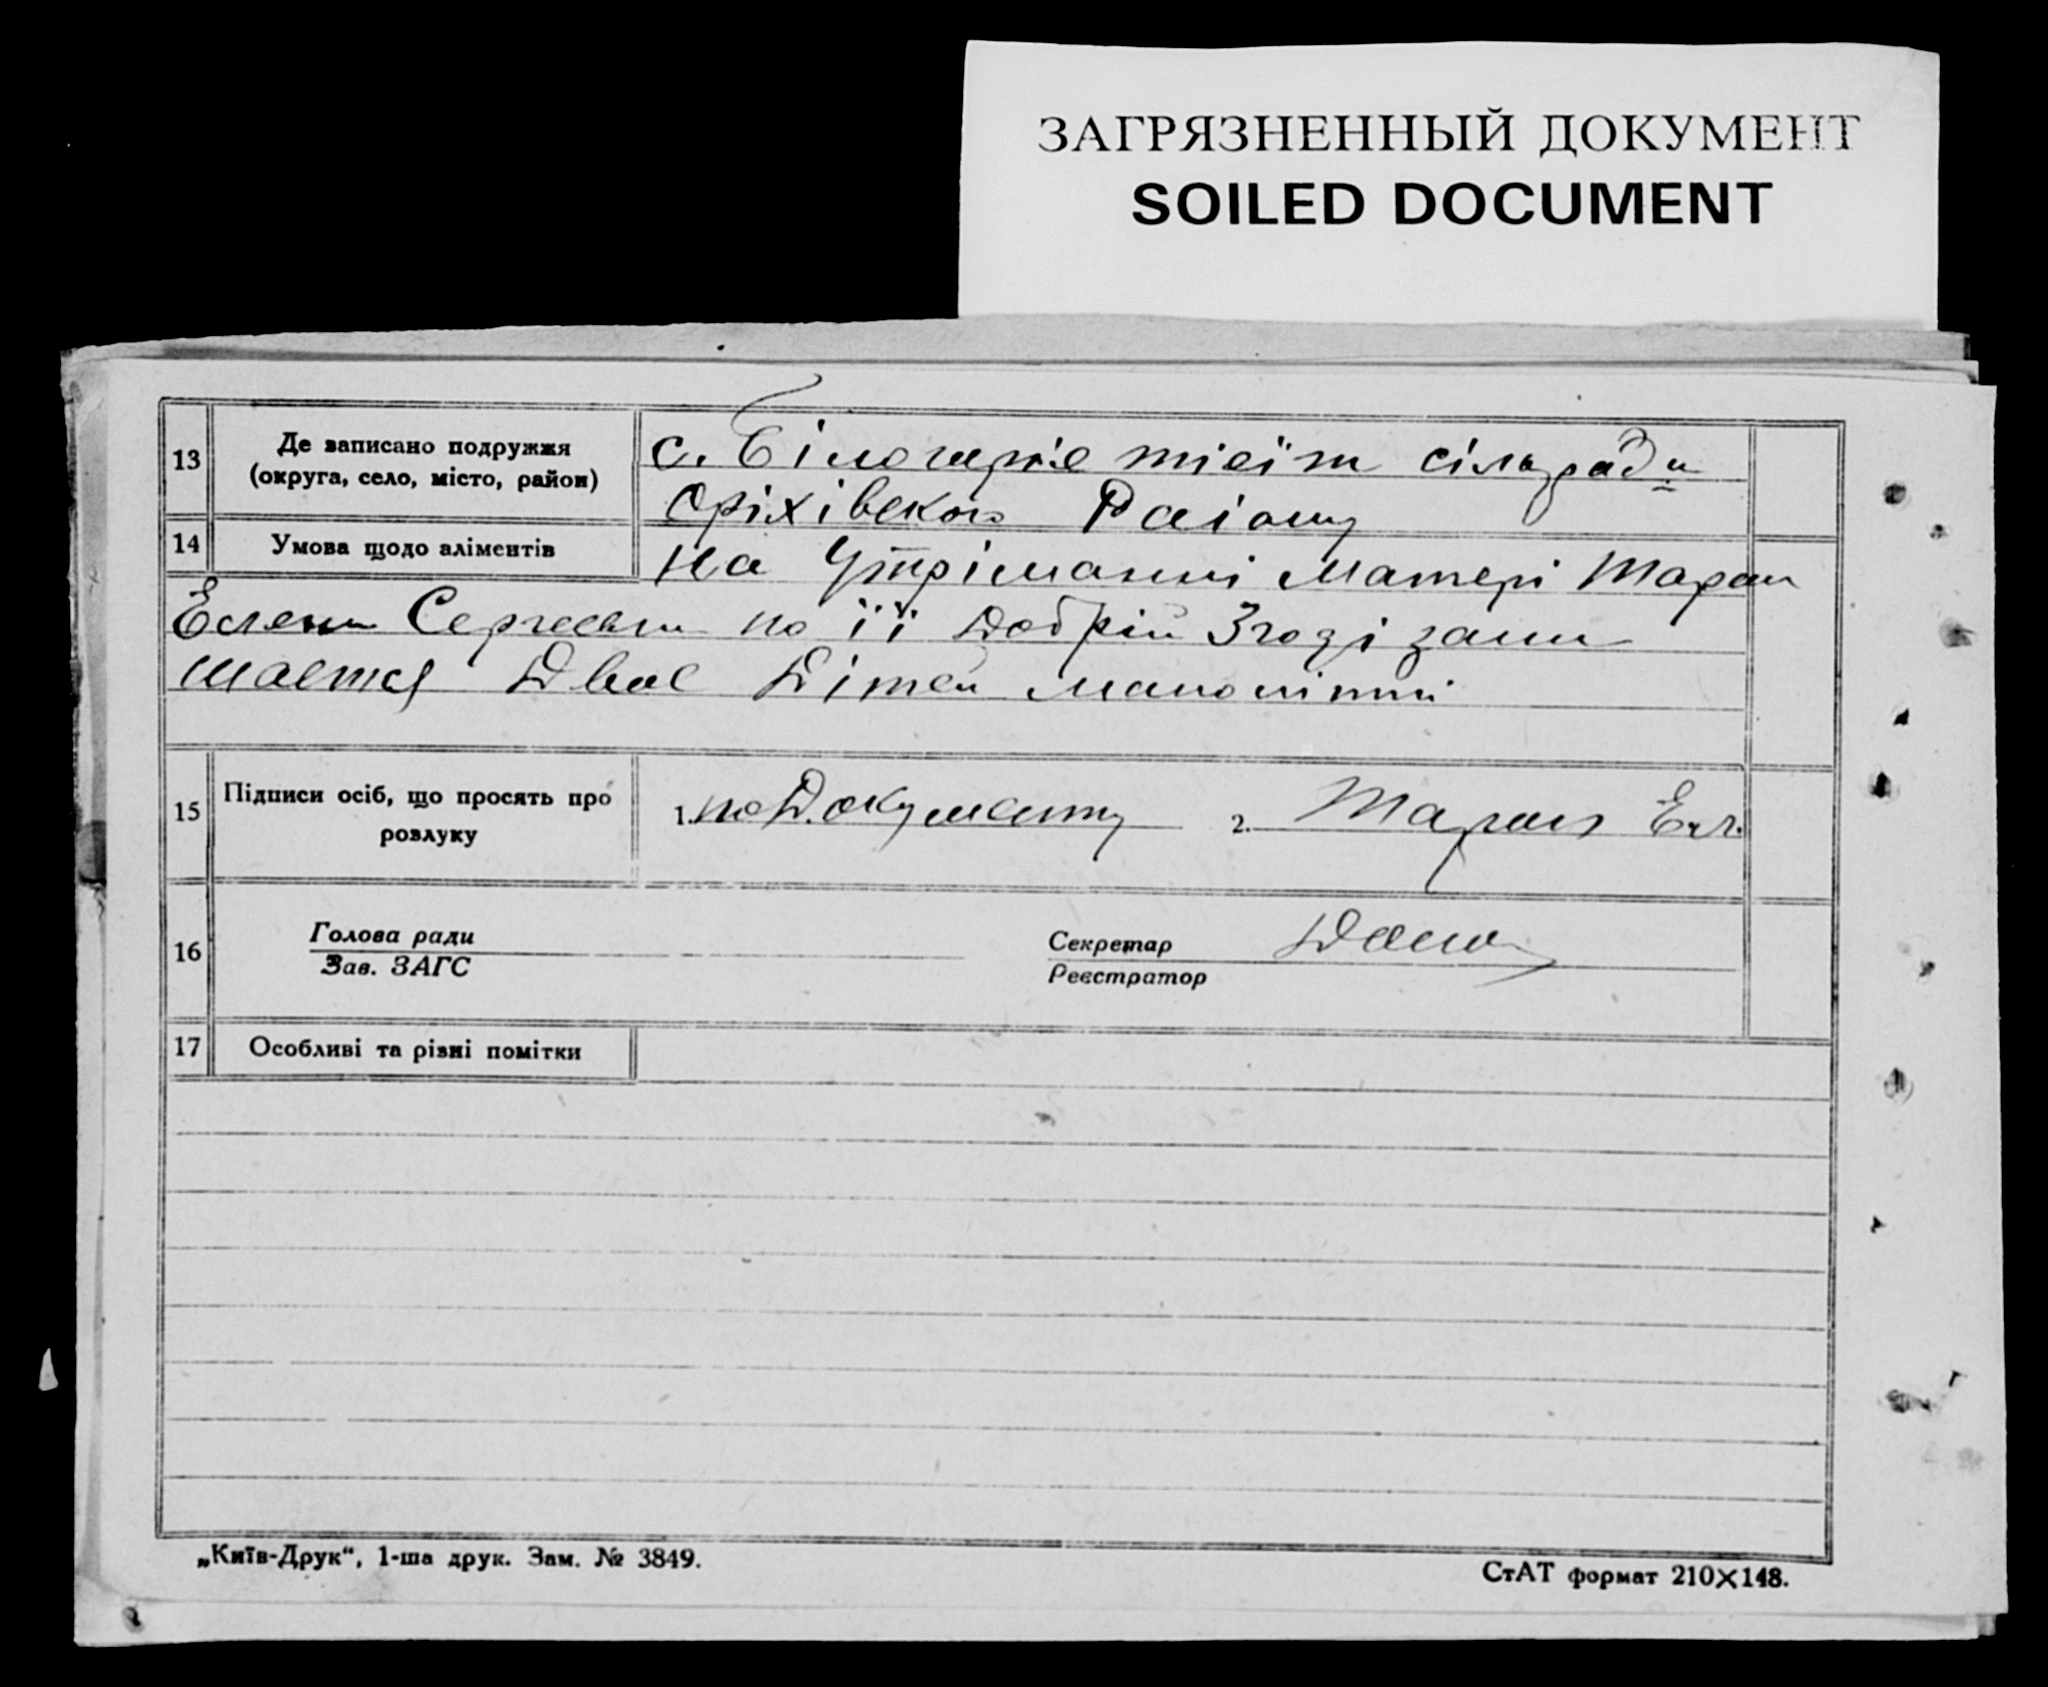 ЗАГРЯЗНЕННЫЙ ДОКУМЕНТ
SOILED DOCUMENT
13
Де записано подружжя
(округа, село, місто, район)
с. Білогирʼе тієїж сільради
Оріхівского Раіону
14
Умова щодо аліментів
на Утріманні Матері Таран
Елени Сергеевни по її Добрій Згоді зали
шается Двое Дітей малолітні
15
Підписи осіб, що просять про
розлуку
1. по Документу
2. Таран Ел.
16
Голова ради
Зав. ЗАГС
Секретар
Реєстратор
17
Особливі та різні помітки
„Київ-Друк“, 1-ша друк. Зам. № 3849.
СтАТ формат 210×148.